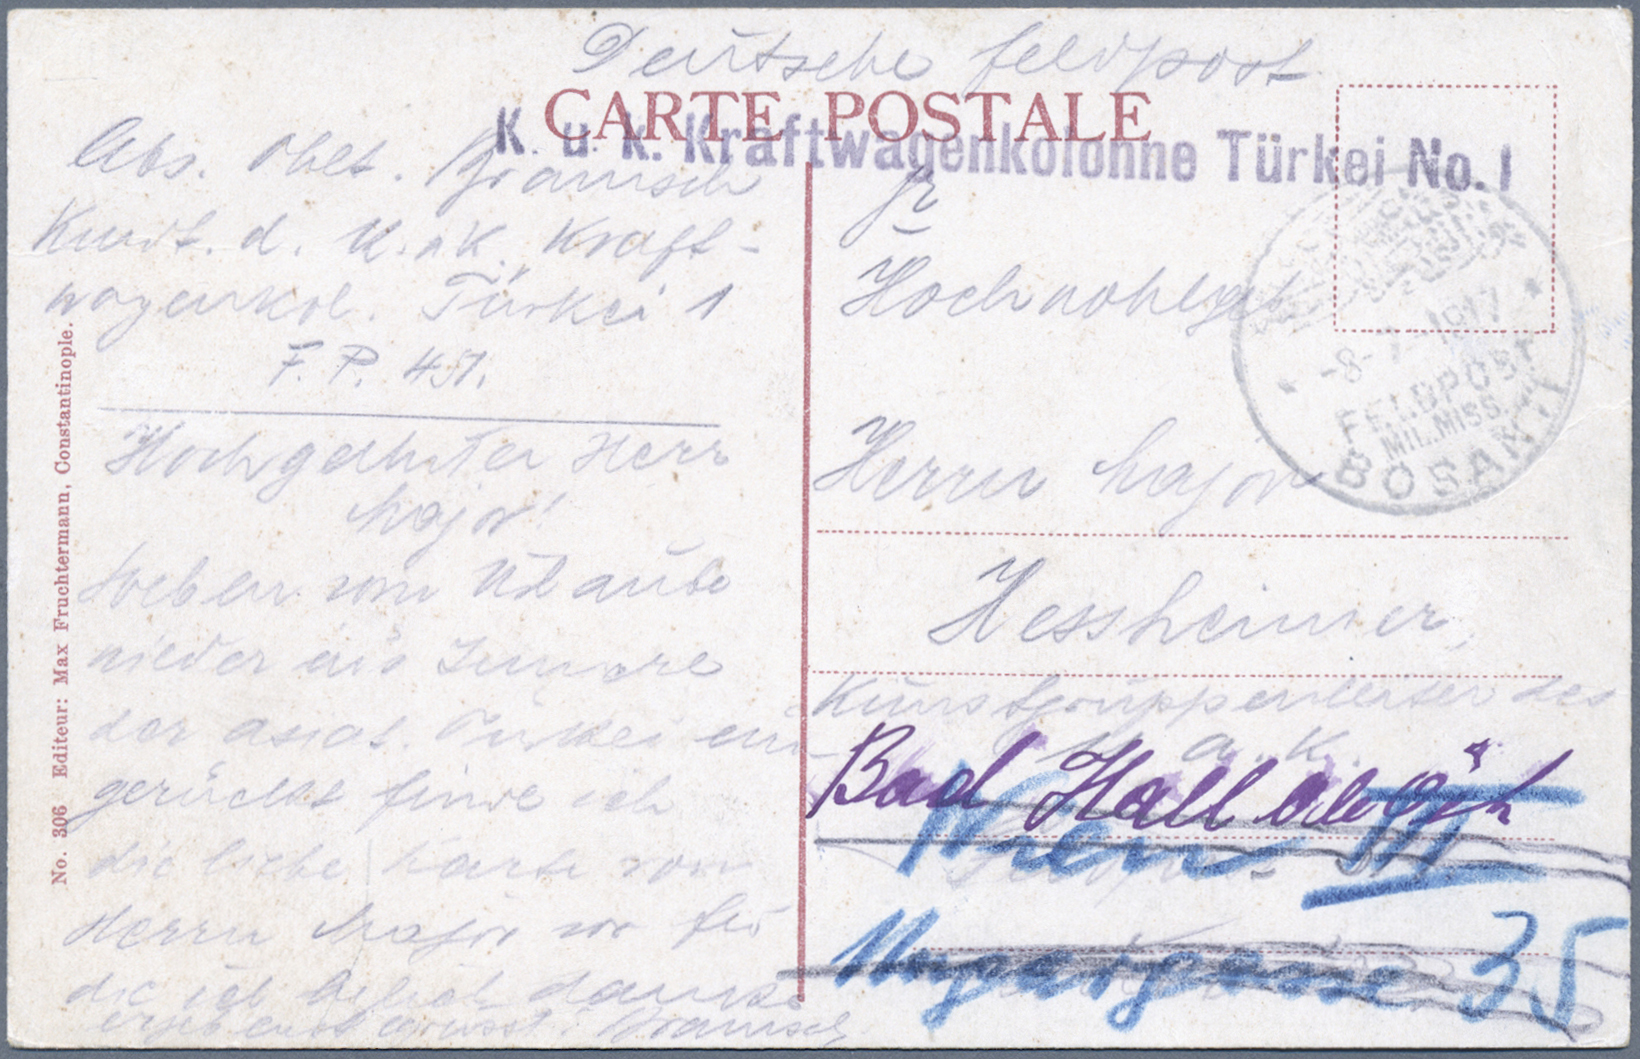 Deutsche Feldpost
CARTE POSTALE
K. u. k. Kraftwagenkolonne Türkei No. 1
Abs. Oblt. Bramsch
Kmdt. d. K.u.K. Kraft-
wagenkol. Türkei 1
F. P. 451.
Hochgeehrter Herr
Major!
Soeben vom Urlaube
wieder ins Innere
der asiat. Türkei ein-
gerückt finde ich
die liebe Karte von
Herrn Major vor für
die ich herzlich danke
ergebenst grüsst: Bramsch
No. 306 Editeur: Max Fruchtermann, Constantinople.
Sr
Hochwohlgeb
Herrn Major
Hessheimer
Kunstgruppenleiter des
K.
Bad Hall Ob Öst
Wien III
Ungargasse 35
-8-7-1917
FELDPOST
MIL.MISS.
BOSANTI